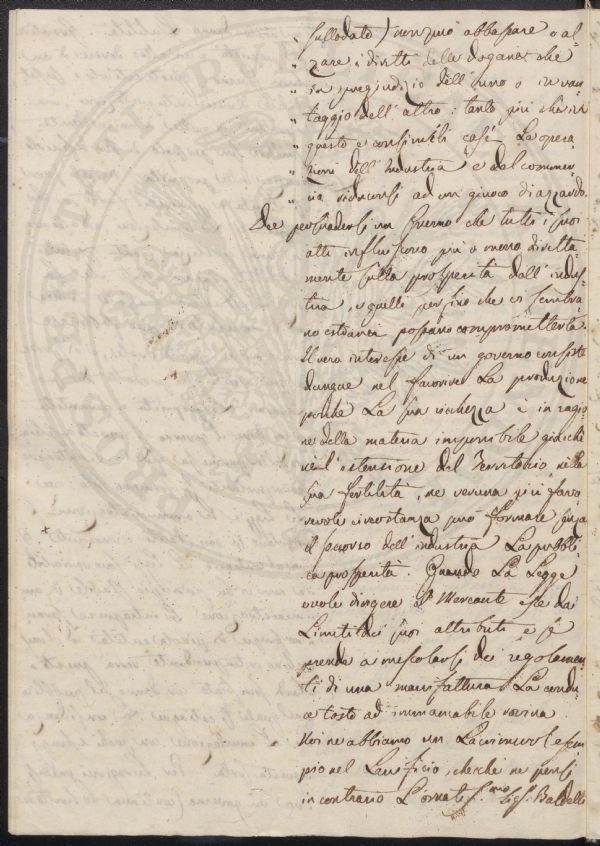 " sullodato) non può abbassare o al-
" zare i diritti delle dogane che
" in pregiudizio dell'uno o in van-
" taggio dell'altro: tanto più che in
" questo e consimili casi le opera-
" zioni dell'industria e del commer-
" cio riduconsi ad un giuoco di azzardo.
Dee persuadersi un Governo che tutti i suoi
atti influiscono più o meno diretta-
mente sulla prosperità dell'indus-
tria, e quelli persino che vi sembra-
no estranei possano comprometterla.
Il vero interesse di un governo consiste
dunque nel favorire la produzione
poichè la sua richezza è in ragio-
ne della materia imponibile giacchè
nè l'estensione del Territorio nè la
sua fertilità, ne veruna più favo-
revole circostanza può formare senza
il soccorso dell'industria la pubbli-
ca prosperità. Quando la Legge
vuole dirigere il Mercante esce dai
Limiti de' suoi attributi e se
prende a mescolarsi dei regolamen-
ti di una manifattura la condu-
ce tosto ad immancabile rovina.
Noi ne abbiamo un lacrimevole esem-
pio nel Lanificio, checchè ne pensi
in contrario l'ornatis.mo Sig. Baldelli